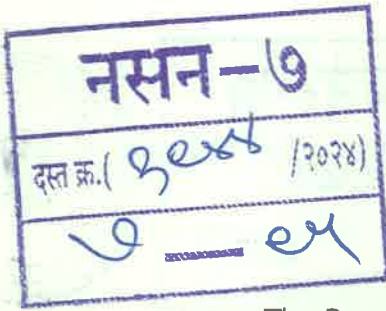 नसन-७
दस्त क्र.( /२०२४)
७ — ९५